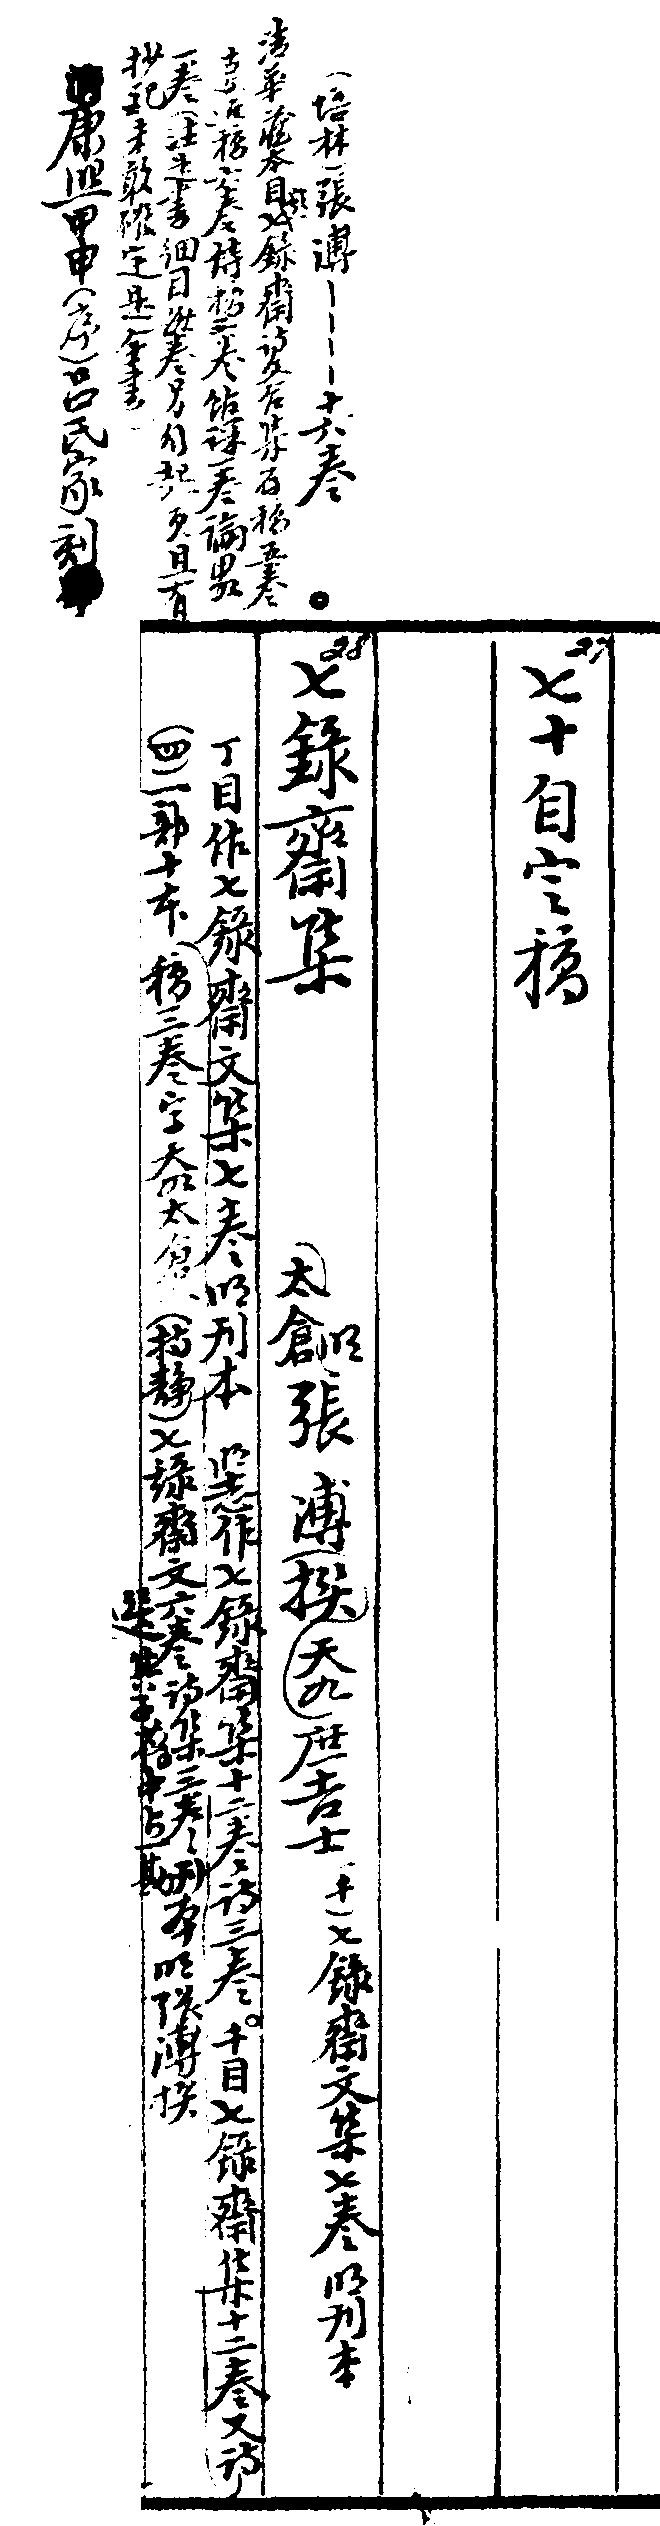 (培林)張溥————十六卷
清華藏本目七錄齋詩文合集存稿五卷
古文近稿六卷詩稿三卷館課一卷論畧
一卷(注先書細目每卷另行起頁且有
抄配未敢確定是全書
康熙甲申(序)呂氏家刻
27
七十自定稿
28
七錄齋集
(太倉)明張溥撰(天九)庶吉士
(千)七錄齋文集七卷明刊本
丁目作七錄齋文集七卷明刊本 明志作七錄齋集十二卷詩三卷。千目七錄齋集十二卷又詩
(四)一部十本
稿三卷字天如太倉人(持靜)七錄齋文六卷詩集三卷明刊本明張溥撰